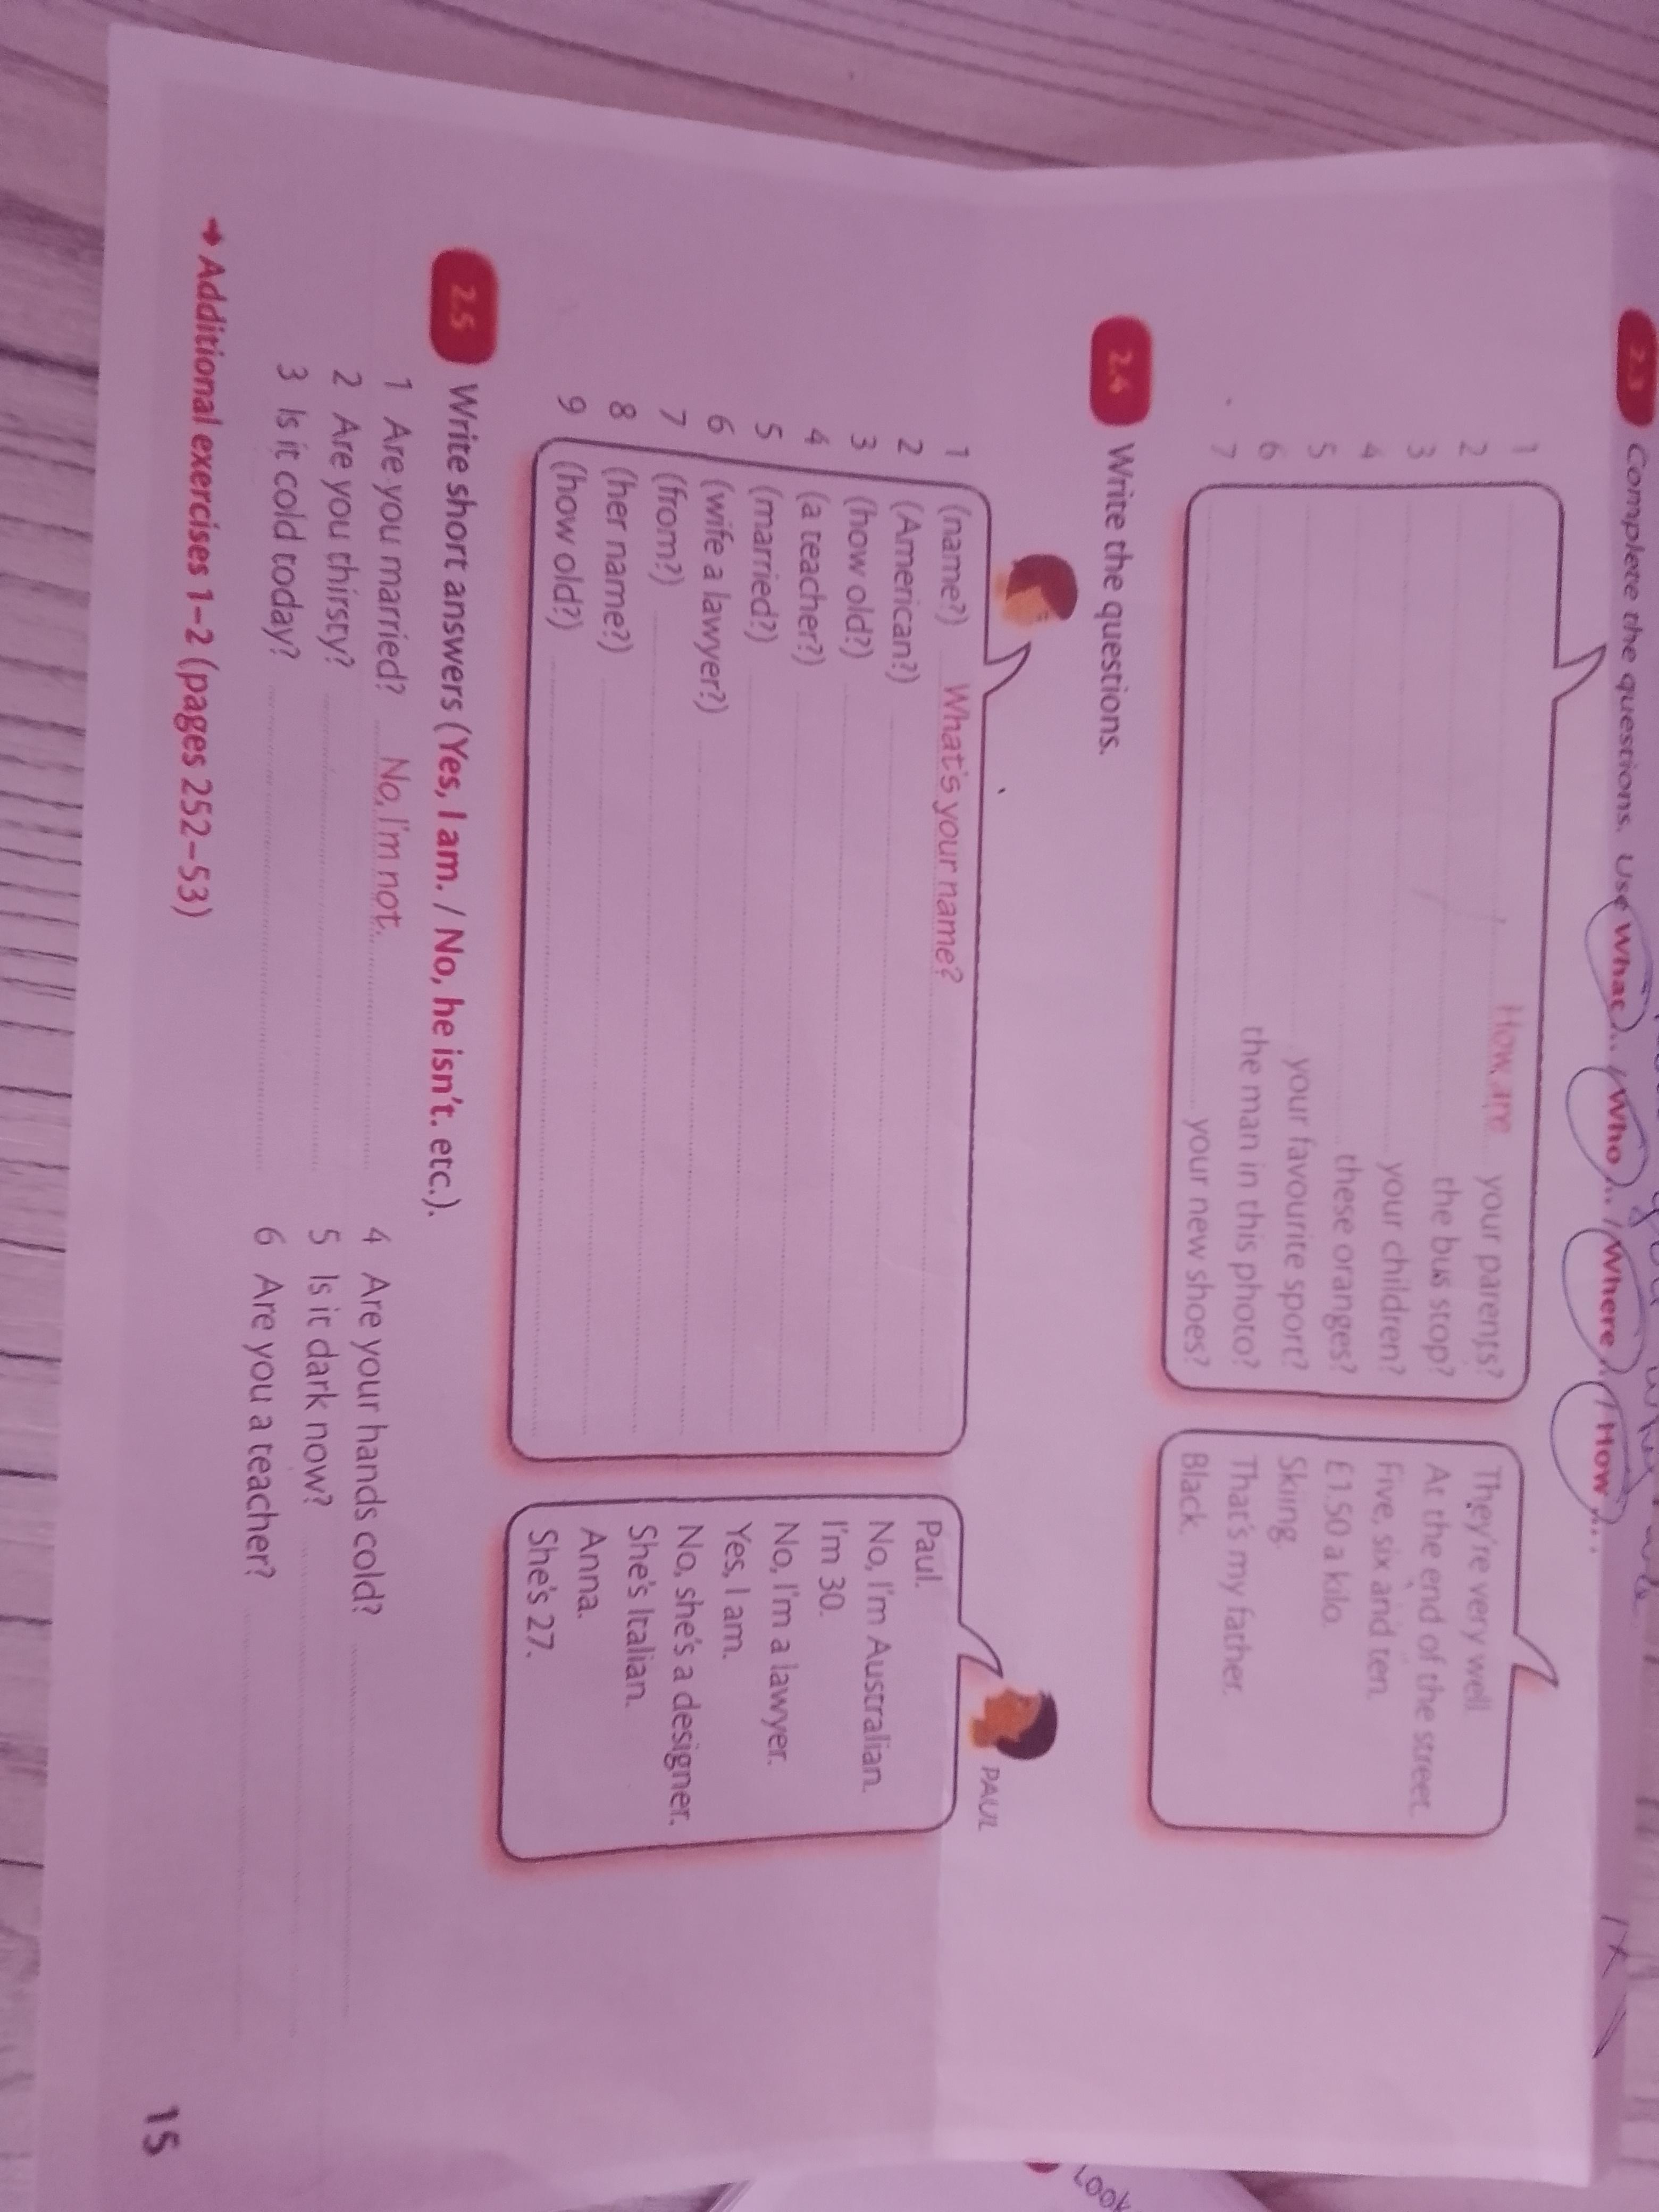 2.3 Complete the questions. Use What... / Who... / Where... / How...
1 How are your parents? They're very well.
2 the bus stop? At the end of the street.
3 your children? Five, six and ten.
4 these oranges? £1.50 a kilo.
5 your favourite sport? Skiing.
6 the man in this photo? That's my father.
7 your new shoes? Black.
2.4 Write the questions.
PAUL
1 (name?) What's your name? Paul.
2 (American?) No, I'm Australian.
3 (how old?) I'm 30.
4 (a teacher?) No, I'm a lawyer.
5 (married?) Yes, I am.
6 (wife a lawyer?) No, she's a designer.
7 (from?) She's Italian.
8 (her name?) Anna.
9 (how old?) She's 27.
2.5 Write short answers (Yes, I am. / No, he isn't. etc.).
1 Are you married? No, I'm not. 4 Are your hands cold?
2 Are you thirsty? 5 Is it dark now?
3 Is it cold today? 6 Are you a teacher?
➜ Additional exercises 1–2 (pages 252–53)
15
Look